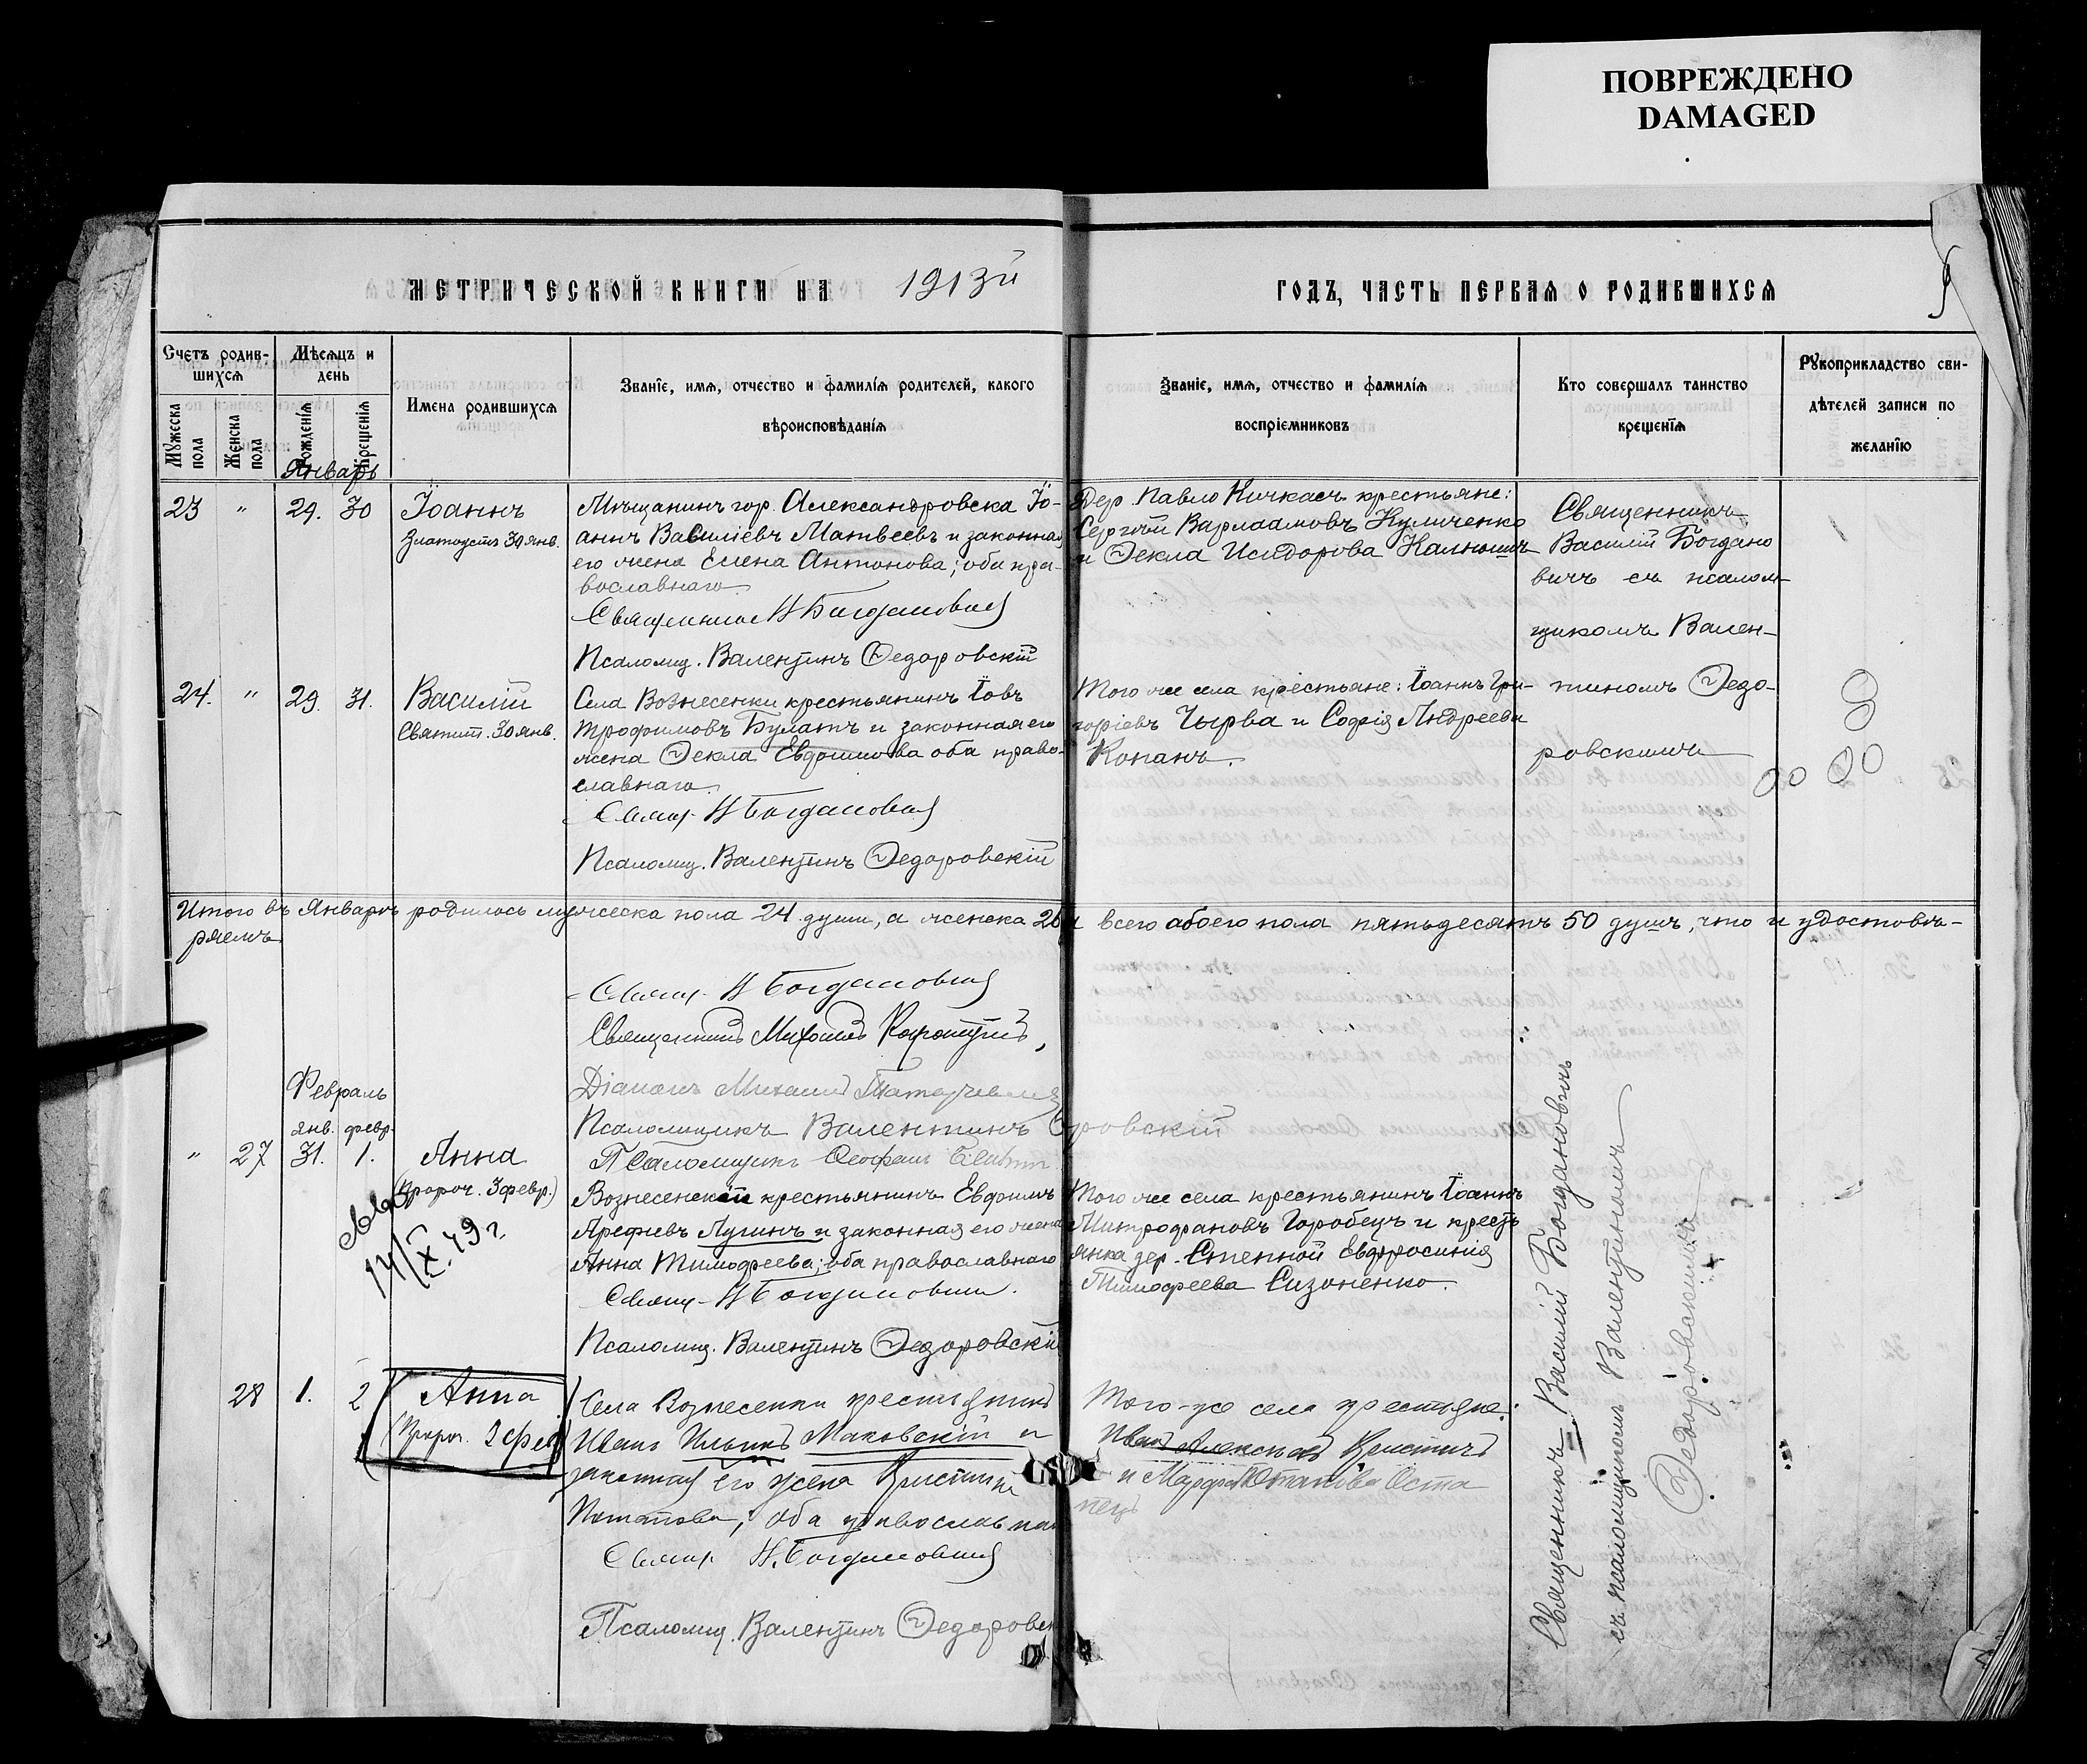 ПОВРЕЖДЕНО
DAMAGED
МЕТРИЧЕСКОЙ КНИГИ НА 1913й
ГОДЪ, ЧАСТЬ ПЕРВАЯ О РОДИВШИХСЯ
Счетъ родив-
шихся
Мѣсяцъ и
день
Мужеска
пола
Женска
пола
Рожденія
Крещенія
Имена родившихся
Званіе, имя, отчество и фамилія родителей, какого
вѣроисповѣданія
Званіе, имя, отчество и фамилія
воспріемниковъ
Кто совершалъ таинство
крещенія
Рукоприкладство сви-
дѣтелей записи по
желанію
Январь
23 " 29. 30 Іоаннъ
Златоустъ 30 янв.
Мѣщанинъ гор. Александровска Іо-
аннъ Василіевъ Матвеевъ и законная
его жена Елена Антонова; оба пра-
вославнаго
Священникъ В Богдановичъ
Псаломщ. Валентинъ Ѳедоровскій
Дер. Павло Кичкасъ крестьяне:
Сергѣй Варлаамовъ Куличенко
и Ѳекла Исидорова
Священникъ
Василій Богдано
вичъ съ псалом-
щикомъ Вален-
тиномъ Ѳедо-
ровскимъ
24. " 29. 31. Василій
Святит. 30 янв.
Села Вознесенки крестьянинъ Іовъ
Трофимовъ Булатъ и законная его
жена Ѳекла Евдокимова оба право-
славнаго
Свящ. В Богдановичъ
Псаломщ. Валентинъ Ѳедоровскій
Того же села крестьяне: Іоаннъ Гри-
горіевъ Чырва и Софія Андреева
Копанъ.
Итого въ Январѣ родилось мужеска пола 24 души, а женска 26, и всего обоего пола пятьдесятъ 50 душъ, что и удостовѣ-
ряемъ
Свящ. В Богдановичъ
Священникъ Михаилъ
Діаконъ Михаилъ
Псаломщикъ Валентинъ Ѳедоровскій
Псаломщикъ Ѳеофанъ
Февраль
янв. февр.
" 27 31. 1. Анна
(Пророч. 3 февр.)
14/X 49 г.
Вознесенскій крестьянинъ Евфимъ
Арефіевъ Лугинъ и законная его жена
Анна Тимофеева; оба православнаго
Свящ. В Богдановичъ.
Псаломщ. Валентинъ Ѳедоровскій
Того же села крестьянинъ Іоаннъ
Митрофановъ Горобецъ и кресть
янка дер. Степной Евфросинія
Тимофеева Сизоненко.
Священникъ Василій Богдановичъ
съ псаломщикомъ Валентиномъ
Ѳедоровскимъ
28 1. 2 Анна
(Пророч. 3 фев)
Села Вознесенки крестьянинъ
Иванъ Ильинъ Маковскій и
законная его жена Христина
Потапова; оба православнаго
Свящ. В. Богдановичъ
Псаломщ. Валентинъ Ѳедоровск
Того-же села крестьяне:
Иванъ Алексѣевъ
и Марфа Потапова Оста
пецъ